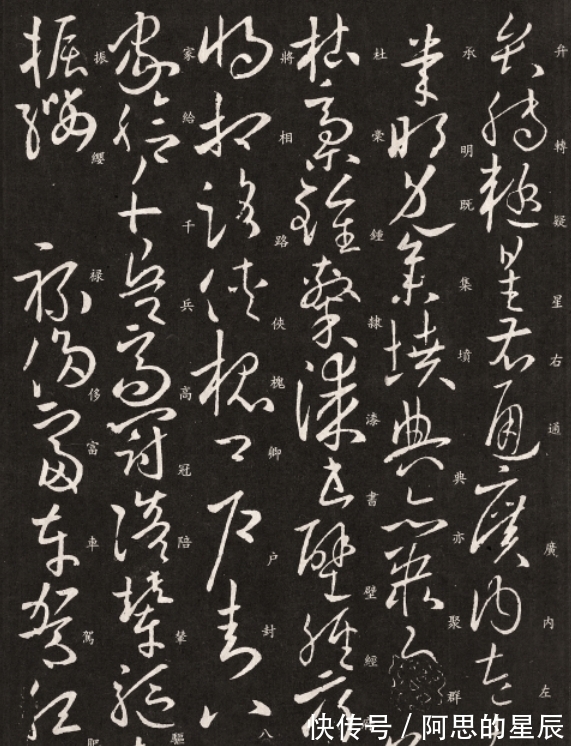 弁轉疑星右通廣内左
承明既集墳典亦聚群
杜稾鍾隸漆書壁經
將相路俠槐卿户封八
家給千兵高冠陪輦驅
振纓禄侈富車駕肥
快传号／阿思的星辰